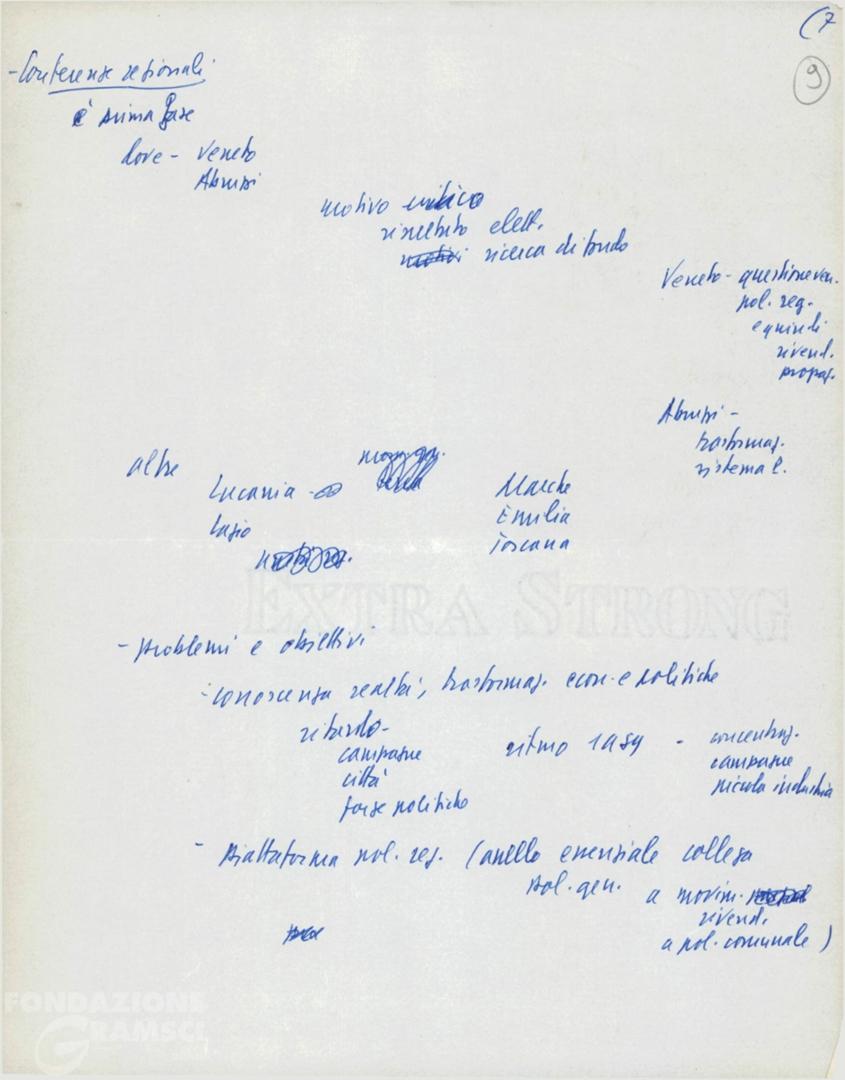 (7
9
- Conferenze regionali
è prima fase
dove - Veneto
Abruzzi
motivo critico
risultato elett.
ricerca di fondo
Veneto - questione ven.
pol. reg.
e quindi
rivend.
propag.
Abruzzi -
trasformaz.
sistema
altre
Lucania -
Marche
Lazio
Emilia
Toscana
EXTRA STRONG
- Problemi e obiettivi
- conoscenza realtà, trasformaz. econ. e politiche
ritardo -
campagne
ritmo 1959 - concentraz.
città
campagne
forze politiche
piccola industria
- Piattaforma pol. reg. (anello essenziale collega
pol. gen. a movim.
rivend.
a pol. comunale)
FONDAZIONE
GRAMSCI